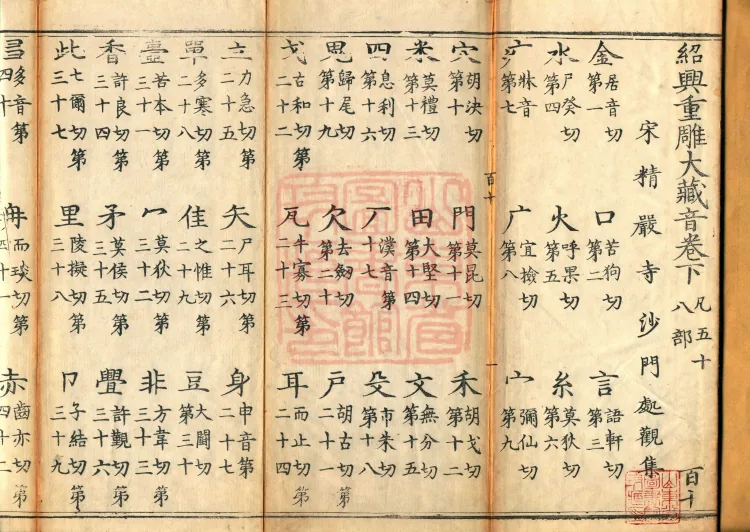 紹興重雕大藏音卷下 凡五十八部
宋精嚴寺沙門處觀集 百十
金 居音切第一 口 苦狗切第二 言 語軒切第三
水 尸癸切第四 火 呼果切第五 糸 莫狄切第六
疒 牀音第七 广 宜撿切第八 宀 彌仙切第九
百十
穴 胡決切第十 門 莫昆切第十一 禾 胡戈切第十二
米 莫禮切第十三 田 大堅切第十四 文 無分切第十五
四 息利切第十六 厂 漢音第十七 殳 市朱切第十八
鬼 歸尾切第十九 欠 去劒切第二十 戶 胡古切第二十一
戈 古和切第二十二 瓦 牛寡切第二十三 耳 而止切第二十四
立 力急切第二十五 矢 尸耳切第二十六 身 申音第二十七
單 多寒切第二十八 隹 之惟切第二十九 豆 大鬪切第三十
苦本切第三十一 冖 莫狄切第三十二 非 方韋切第三十三
香 許良切第三十四 矛 莫侯切第三十五 許覲切第三十六
此 七爾切第三十七 里 陵擬切第三十八 卩 子結切第三十九
多音第四十 冉 而琰切第四十一 赤 齒亦切第四十二